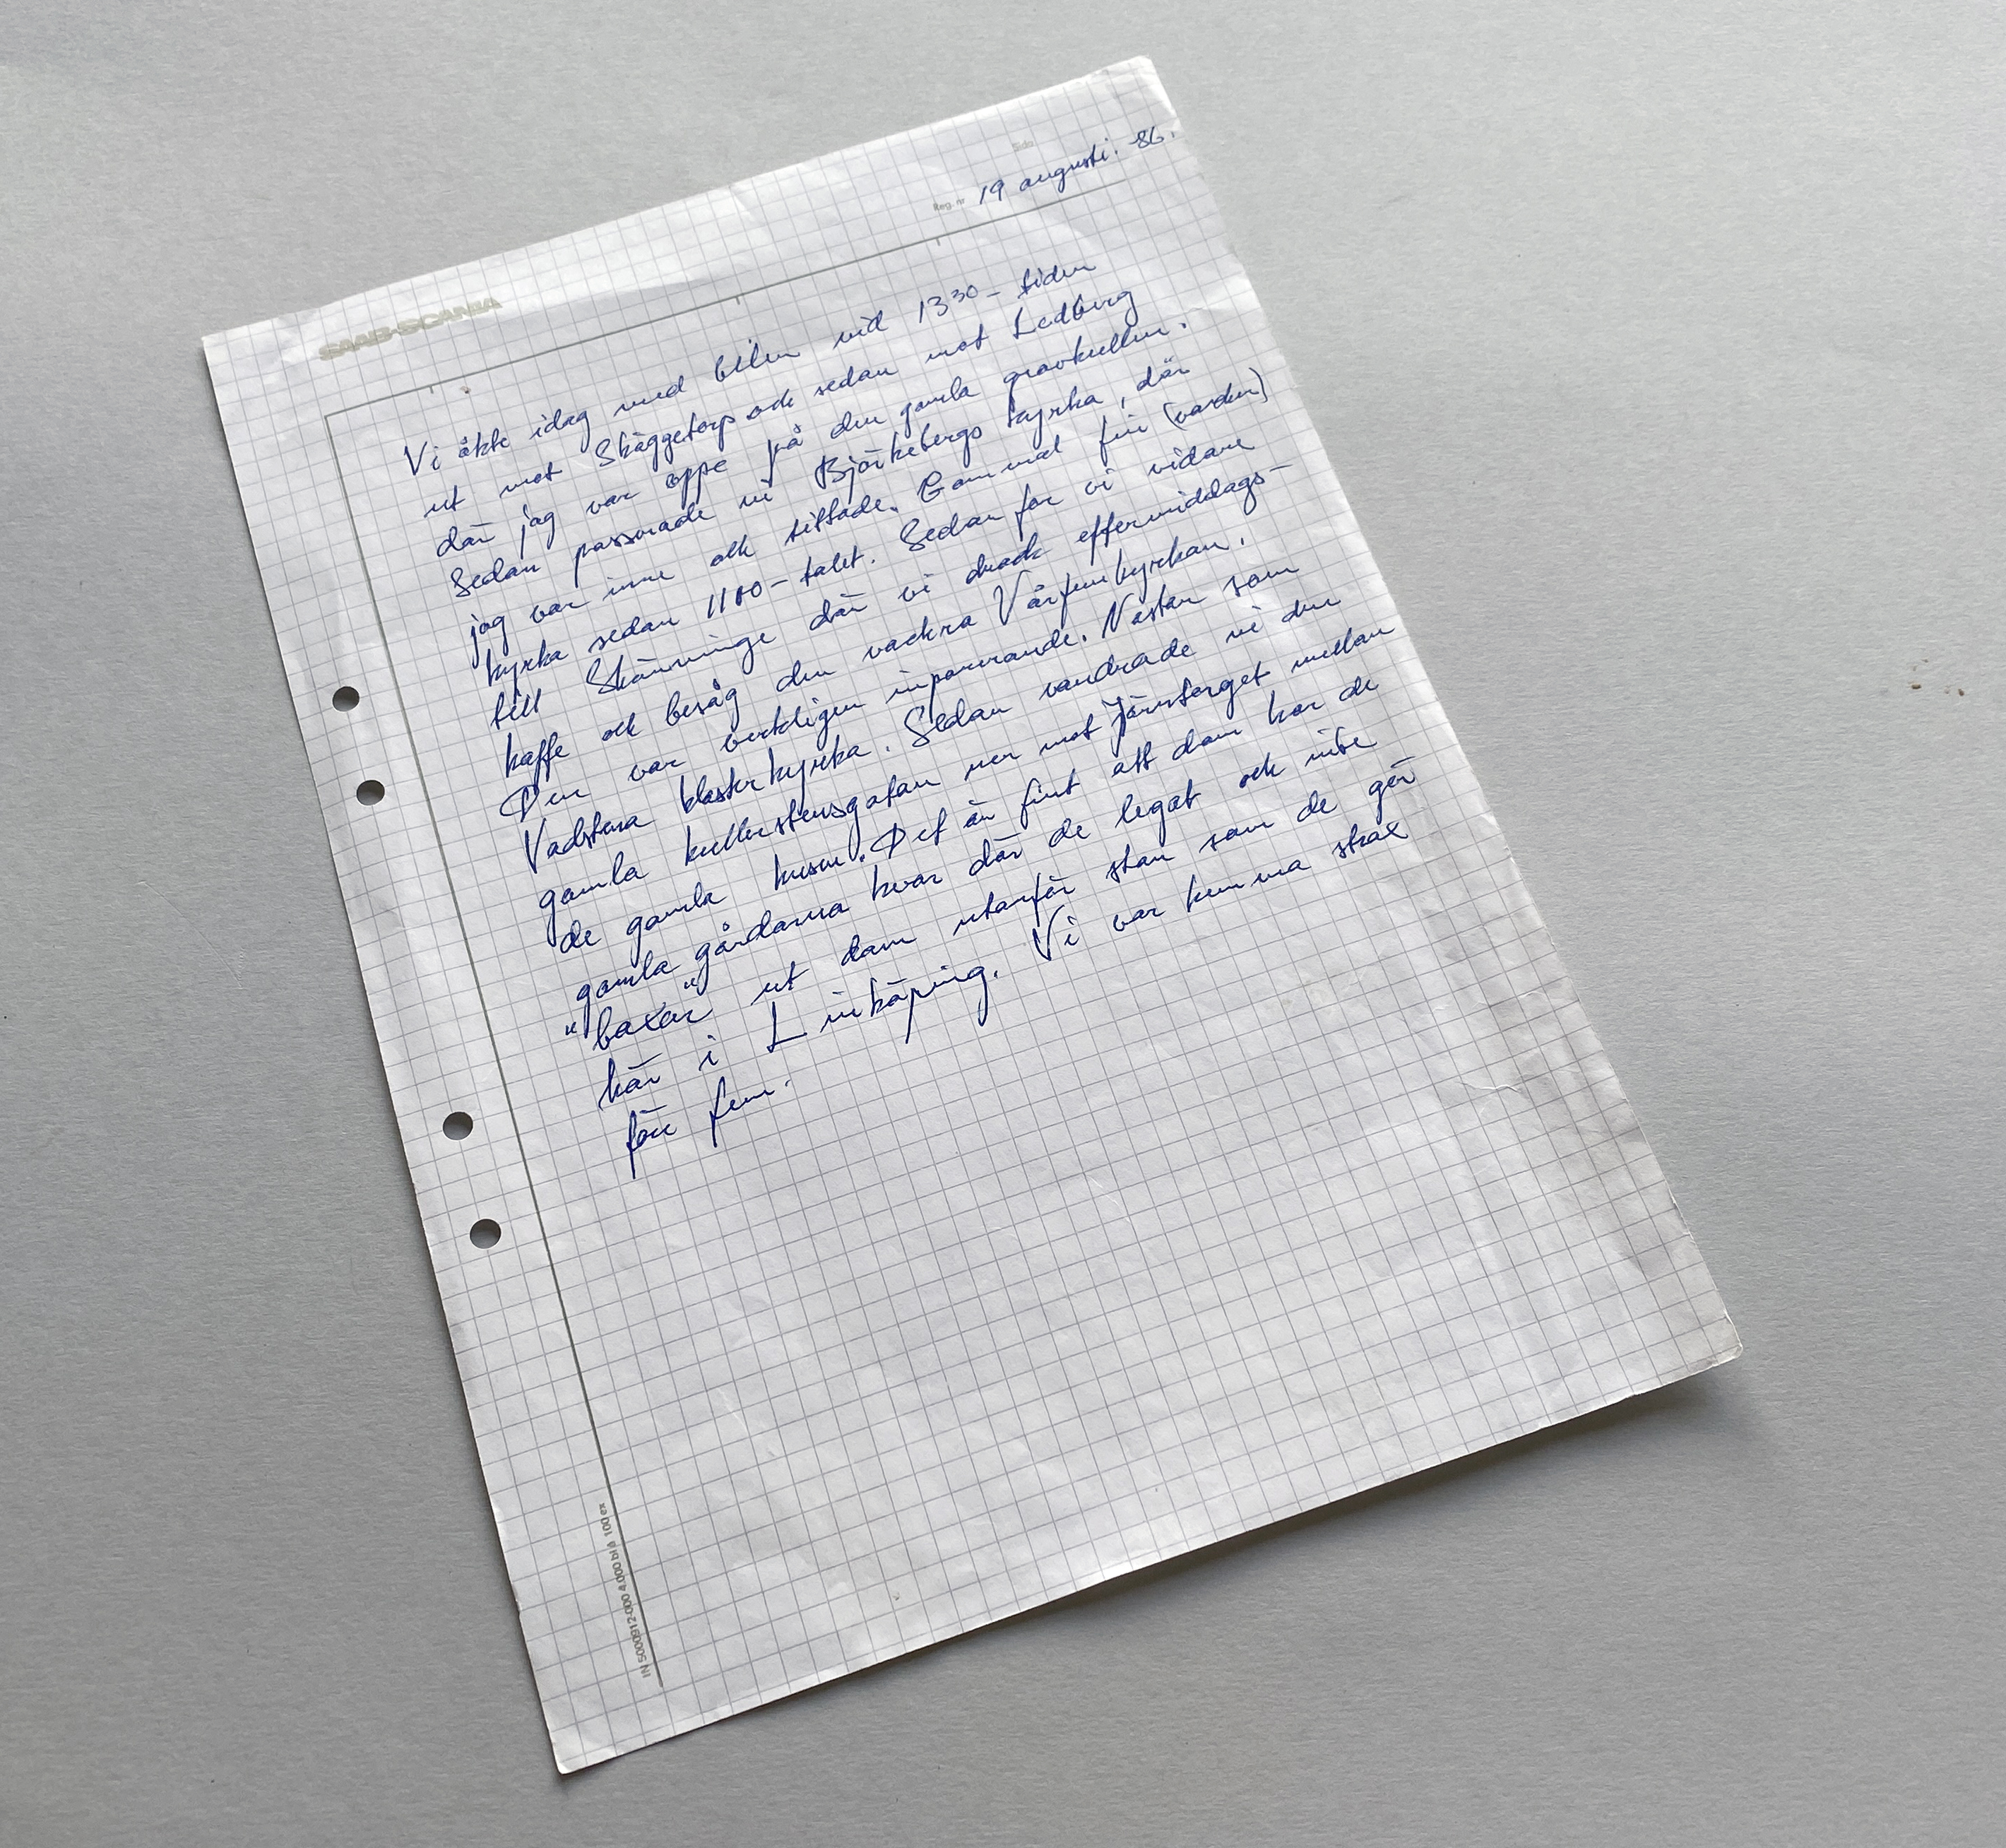 Sida
Reg. nr 19 augusti. -86.
SAAB-SCANIA
Vi åkte idag med bilen vid 13 30 - tiden
ut mot Skäggetorp och sedan mot Ledberg
där jag var oppe på den gamla gravkullen.
Sedan passerade vi Björkebergs kyrka, där
jag var inne och tittade. Gammal fin (vacker)
kyrka sedan 1100-talet. Sedan for vi vidare
till Skänninge där vi drack eftermiddags-
kaffe och besåg den vackra Vårfrukyrkan.
Den var verkligen imponerande. Nästan som
Vadstena klosterkyrka. Sedan vandrade vi den
gamla kullerstensgatan ner mot Järntorget mellan
de gamla husen. Det är fint att dom har de
gamla gårdarna kvar där de legat och inte
"baxar" ut dom utanför stan som de gör
här i Linköping. Vi var hemma strax
före fem.
IN 5000912.000 4.000 bl à 100 ex